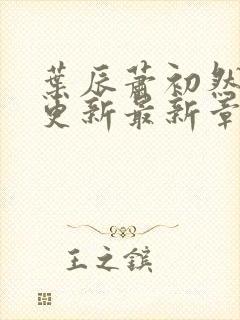 葉辰蕭初然
更新最新章
王之鎂